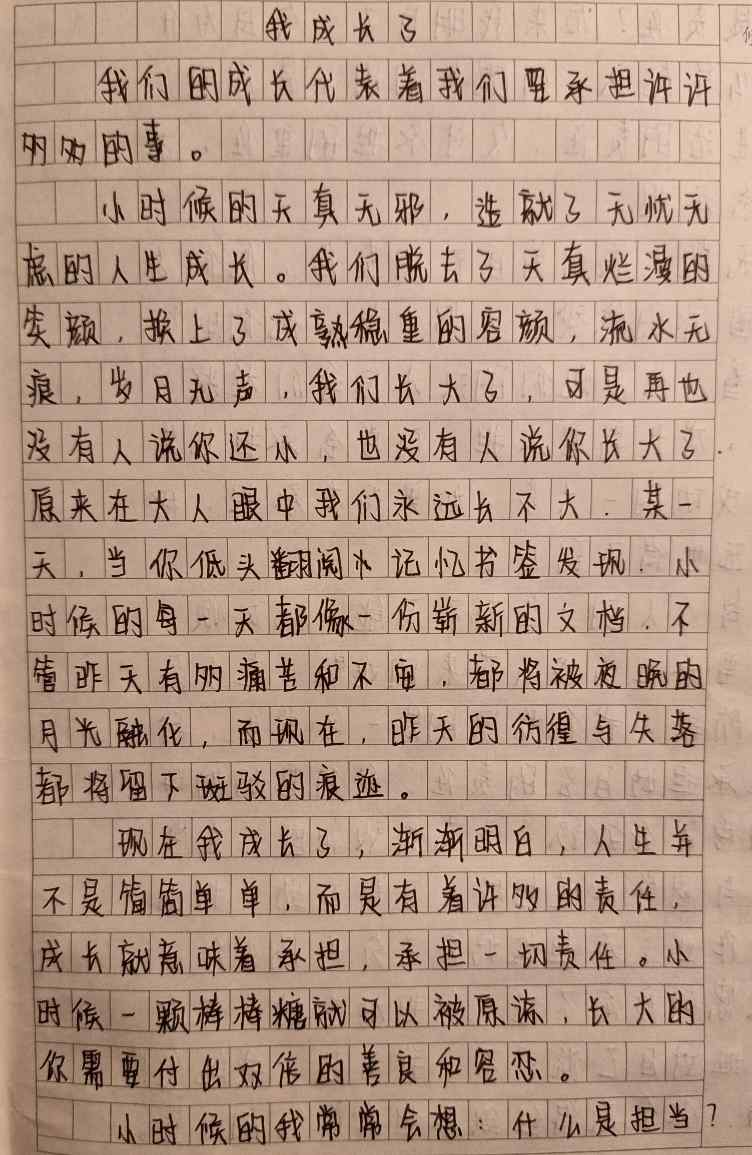 我成长了
我们的成长代表着我们要承担许许
多多的事。
小时候的天真无邪，造就了无忧无
虑的人生成长。我们脱去了天真烂漫的
笑颜，换上了成熟稳重的容颜，流水无
痕，岁月无声，我们长大了，可是再也
没有人说你还小，也没有人说你长大了.
原来在大人眼中我们永远长不大.某一
天，当你低头翻阅小记忆书签发现.小
时候的每一天都像一份崭新的文档.不
管昨天有多痛苦和不安，都将被夜晚的
月光融化，而现在，昨天的彷徨与失落
都将留下斑驳的痕迹。
现在我成长了，渐渐明白，人生并
不是简简单单，而是有着许多的责任，
成长就意味着承担，承担一切责任。小
时候一颗棒棒糖就可以被原谅，长大的
你需要付出双倍的善良和容忍。
小时候的我常常会想：什么是担当？